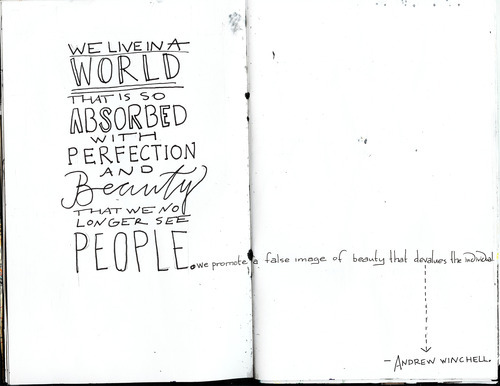 WE LIVE IN A
WORLD
THAT IS SO
ABSORBED
WITH
PERFECTION
AND
Beauty
THAT WE NO
LONGER SEE
PEOPLE.
we promote a false image of beauty that devalues the individual.
- ANDREW WINCHELL.